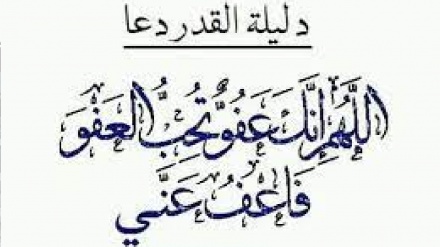 د ليلة القدر دعا
اللَّهُمَّ إِنَّكَ عَفُوٌّ تُحِبُّ الْعَفْوَ
فَاعْفُ عَنِّي